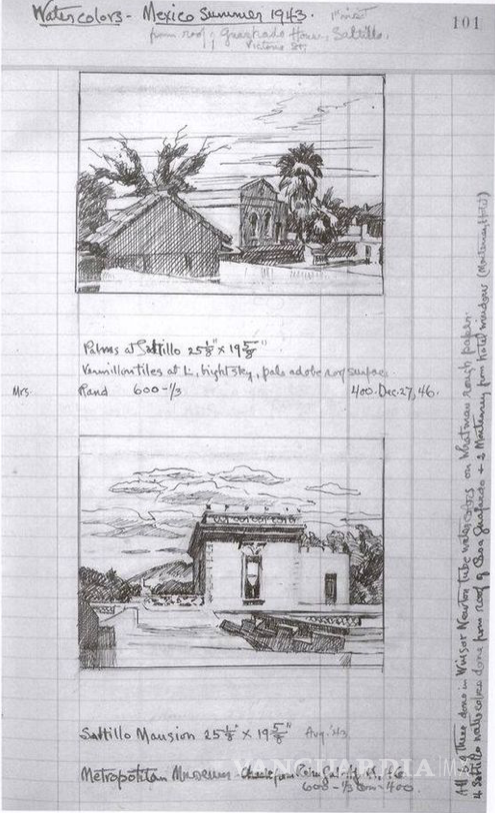 Watercolors - Mexico Summer 1943.
101
from roof of Guarhado House, Saltillo.
Victoria St.
Palms at Saltillo 25 1/8" x 19 5/8"
Vermillion tiles at L., bright sky, pale adobe roof surface
Mrs. Rand 600 - 1/3 400. Dec. 27, 46.
Saltillo Mansion 25 1/8" x 19 5/8" Aug. '43.
Metropolitan Museum - Check from
600 - 1/3 com - 400.
VANGUARDIA|MX
All 5 of These done in Winsor Newton tube water colors on Whatman rough paper.
4 Saltillo watercolors done from roof of Casa Guarhado + 2 Monterrey from hotel windows (Monterrey Hotel)